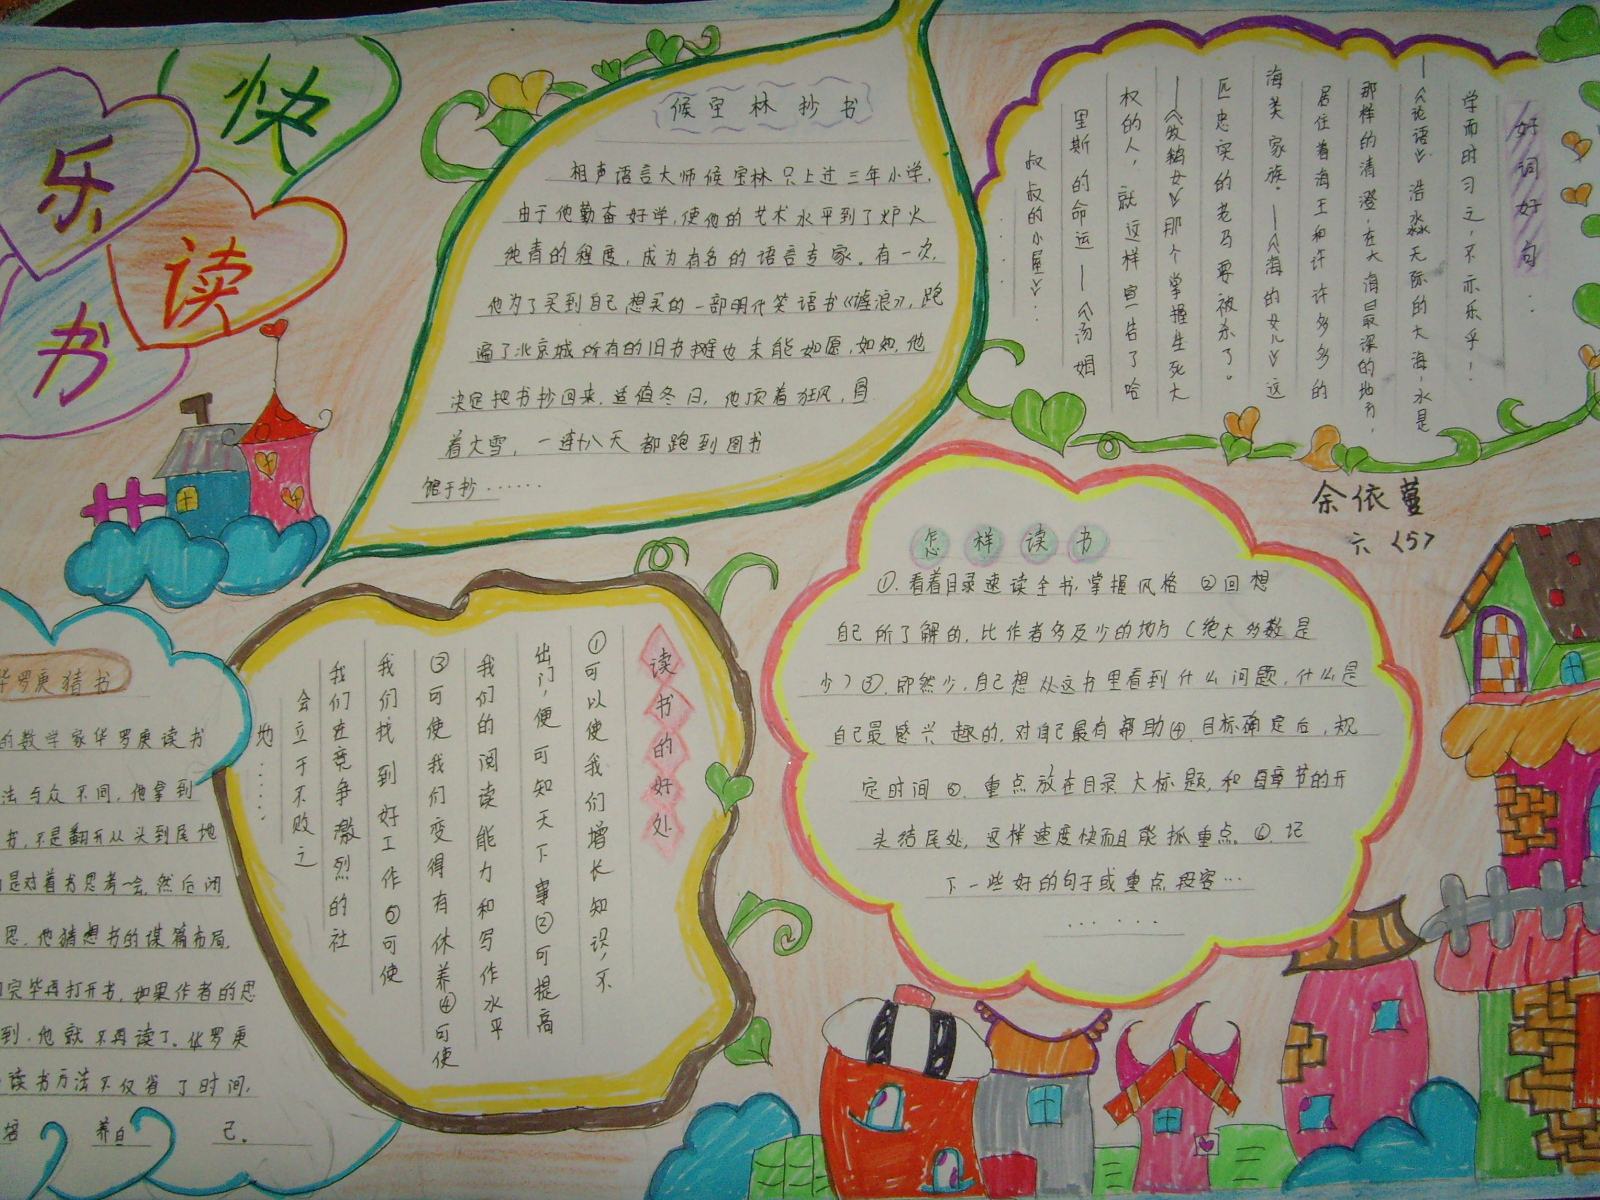 快
乐
读
书
候宝林抄书
相声语言大师候宝林只上过三年小学,
由于他勤奋好学,使他的艺术水平到了炉火
纯青的程度,成为有名的语言专家。有一次,
他为了买到自己想买的一部明代笑话书《谑浪》,跑
遍了北京城所有的旧书摊也未能如愿,如知,他
决定把书抄回来.适值冬日,他顶着狂风,冒
着大雪,一连十八天都跑到图书
馆于抄······
好词好句···
学而时习之,不亦乐乎!
——《论语》 浩淼无际的大海,水是
那样的清澄,在大海最深的地方,
居住着海王和许许多多的
海美家族。——《海的女儿》这
匹忠实的老马要被杀了。
——《牧鹅女》那个掌握生死大
权的人,就这样宣告了哈
里斯的命运——《汤姆
叔叔的小屋》···
余依蔓
六<5>
怎样读书
①.看着目录速读全书,掌握风格 ②回想
自己所了解的,比作者多及少的地方(绝大多数是
少)③.即然少,自己想从这书里看到什么问题,什么是
自己最感兴趣的,对自己最有帮助④目标确定后,规
定时间⑤.重点放在目录大标题,和每章节的开
头结尾处,这样速度快而且能抓重点。⑥.记
下一些好的句子或重点段容···
······
读书的好处
①可以使我们增长知识,不
出门,便可知天下事②可提高
我们的阅读能力和写作水平
③可使我们变得有休养④可使
我们找到好工作⑤可使
我们在竞争激烈的社
会立于不败之
地·····
华罗庚猜书
的数学家华罗庚读书
法与众不同,他拿到
书,不是翻开从头到尾地
是对着书思考一会,然后闭
思,他猜想书的谋篇布局,
完毕再打开书,如果作者的思
到,他就不再读了。华罗庚
读书方法不仅省了时间,
培 养自 己。